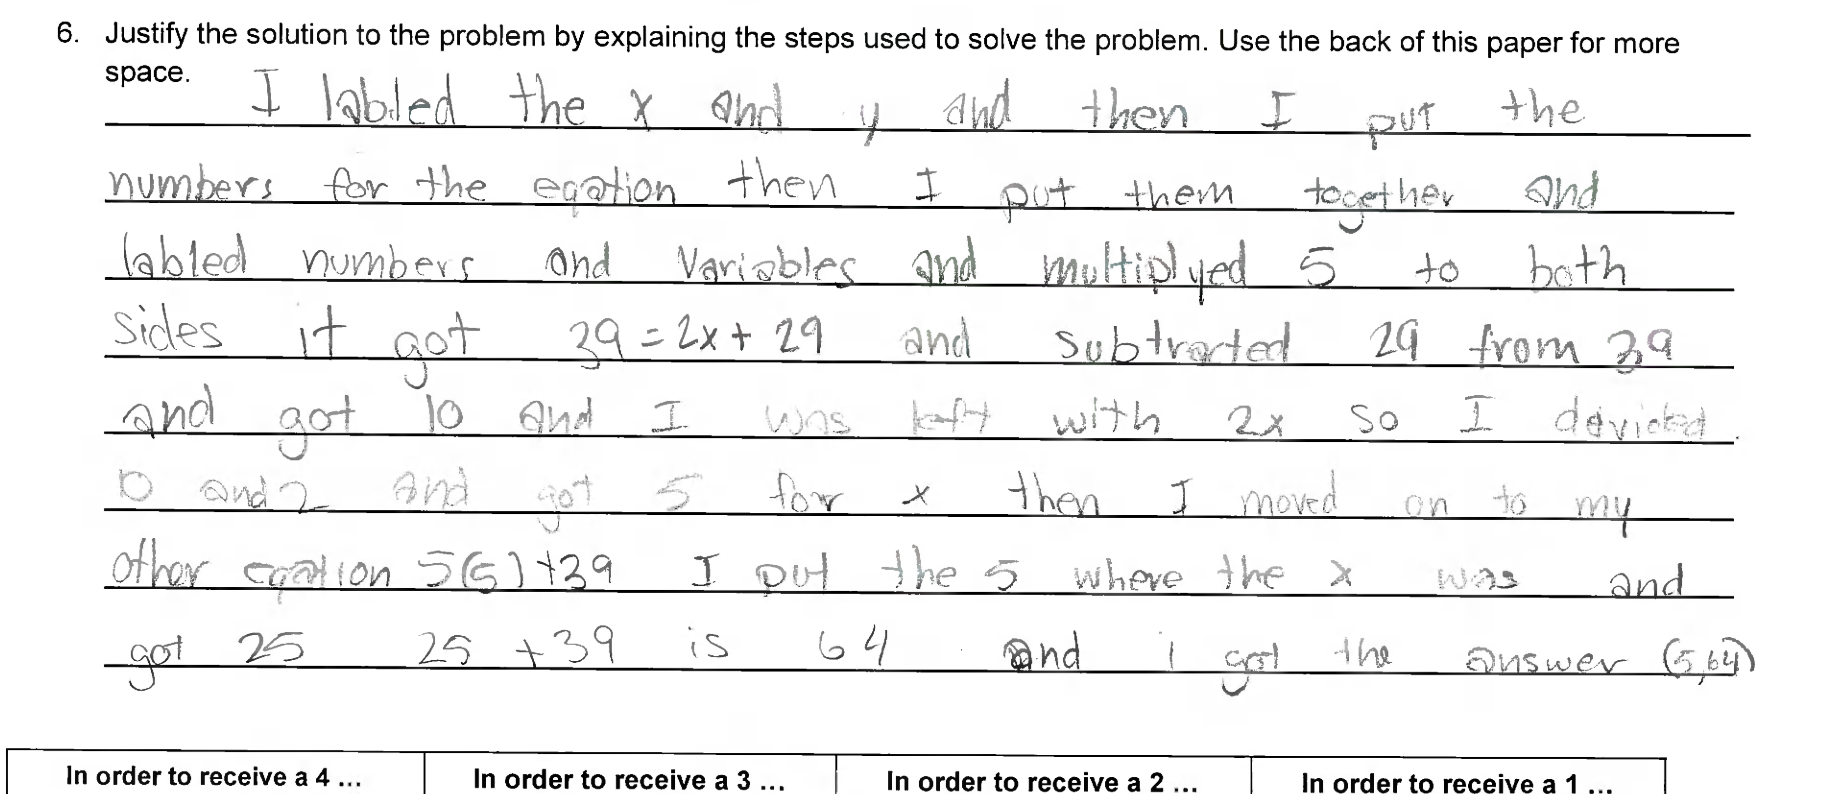 6. Justify the solution to the problem by explaining the steps used to solve the problem. Use the back of this paper for more
space.
I labled the x and y and then I put the
numbers for the eqation then I put them together and
labled numbers and variables and multiplyed 5 to both
sides it got 39 = 2x + 29 and subtracted 29 from 39
and got 10 and I was left with 2x so I devided
0 and 2 and got 5 for x then I moved on to my
other eqation 5(5)+39 I put the 5 where the x was and
got 25 25 +39 is 64 and i got the answer (5,64)
In order to receive a 4 ... In order to receive a 3 ... In order to receive a 2 ... In order to receive a 1 ...